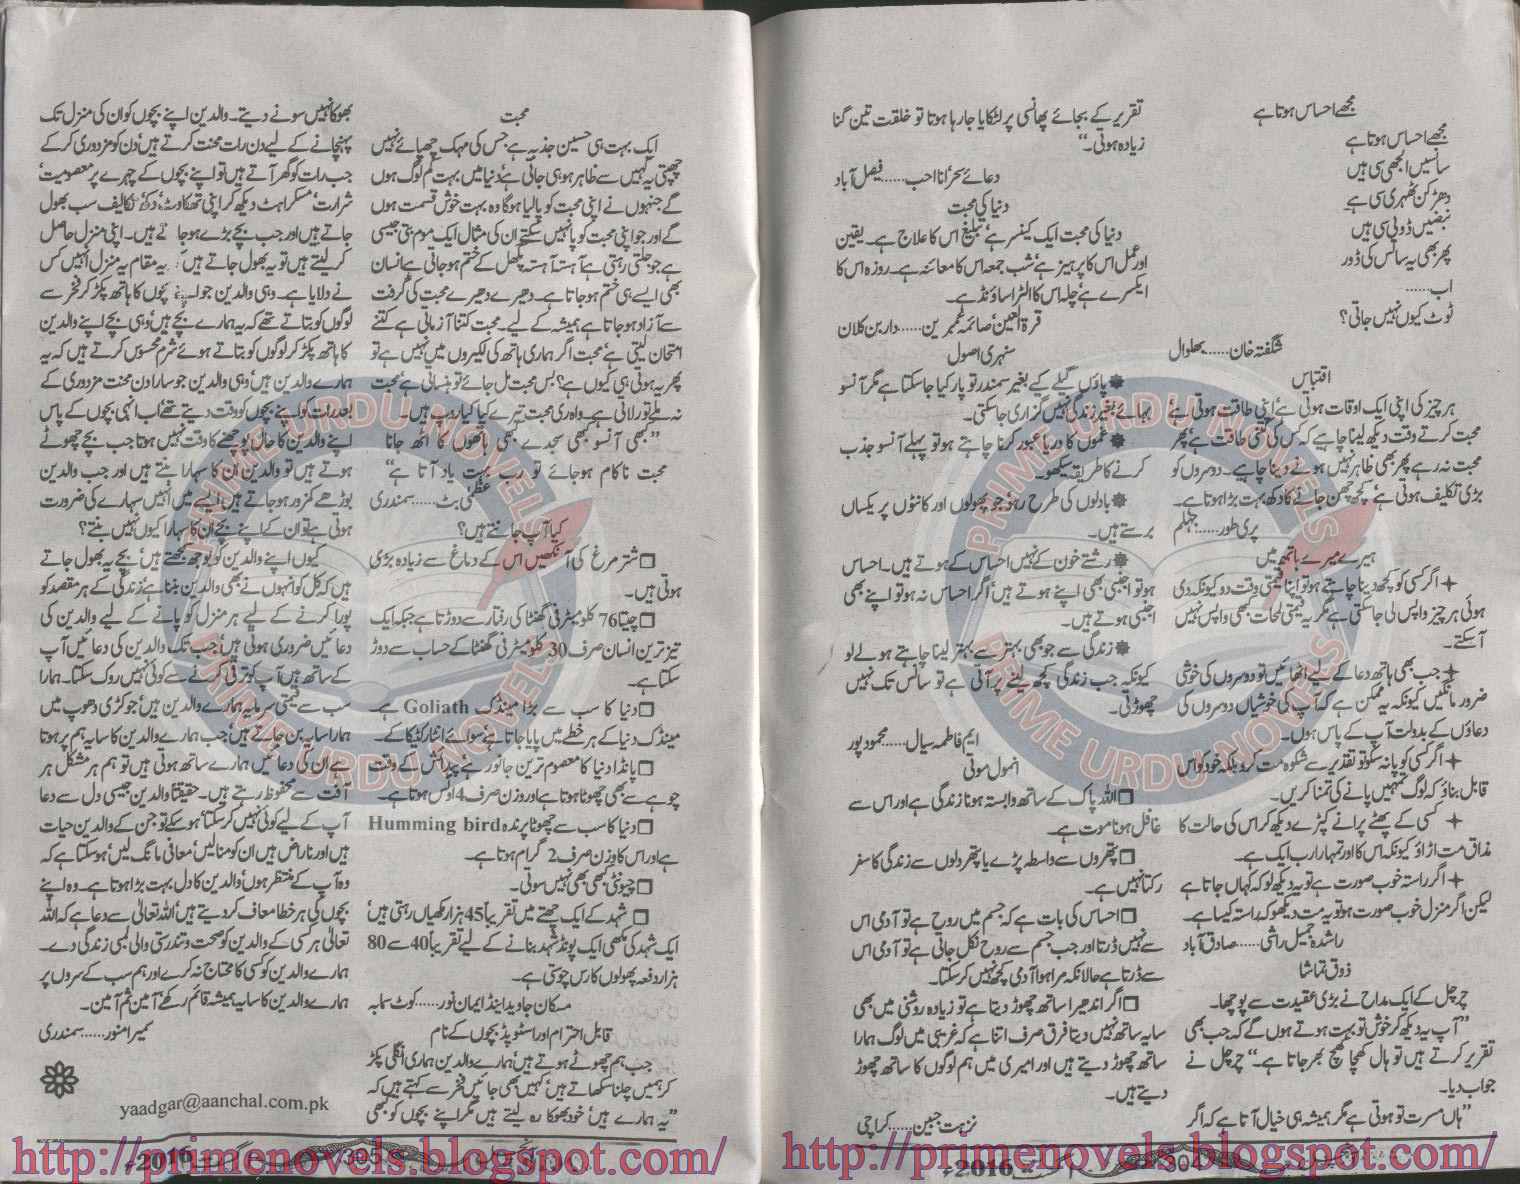 مجھے احساس ہوتا ہے
مجھے احساس ہوتا ہے
سانسیں الجھی سی ہیں
دھڑکن ٹھہری سی ہے
نبضیں ڈوبی سی ہیں
پھر بھی یہ سانس کی ڈور
اب......
ٹوٹ کیوں نہیں جاتی؟
شگفتہ خان...... بھلوال
اقتباس
ہر چیز کی اپنی ایک اوقات ہوتی ہے‘ اپنی طاقت ہوتی ہے‘
محبت کرتے وقت دیکھ لینا چاہیے کہ کس کی کتنی طاقت ہے‘ پھر
محبت نہ رہے پھر بھی ظاہر نہیں ہونے دینا چاہیے۔ دوسروں کو
بڑی تکلیف ہوتی ہے‘ کچھ چھن جانے کا دکھ بہت بڑا ہوتا ہے۔
پری طور...... جہلم
ہیرے میرے ہاتھ میں
+ اگر کسی کو کچھ دینا چاہتے ہو تو اپنا قیمتی وقت دو کیونکہ دی
ہوئی ہر چیز واپس لی جاسکتی ہے مگر یہ قیمتی لمحات بھی واپس نہیں
آسکتے۔
+ جب بھی ہاتھ دعا کے لیے اٹھائیں تو دوسروں کی خوشی
ضرور مانگیں کیونکہ یہ ممکن ہے کہ آپ کی خوشیاں دوسروں کی
دعاؤں کے بدولت آپ کے پاس ہوں۔
+ اگر کسی کو پا نہ سکو تو تقدیر سے شکوہ مت کرو بلکہ خود کو اس
قابل بناؤ کہ لوگ تمہیں پانے کی تمنا کریں۔
+ کسی کے پھٹے پرانے کپڑے دیکھ کر اس کی حالت کا
مذاق مت اڑاؤ کیونکہ اس کا اور تمہارا رب ایک ہے۔
+ اگر راستہ خوب صورت ہے تو یہ دیکھ لو کہ کہاں جاتا ہے
لیکن اگر منزل خوب صورت ہو تو یہ مت دیکھو کہ راستہ کیسا ہے۔
راشدہ جمیل راشی...... صادق آباد
ذوق تماشا
چرچل کے ایک مداح نے بڑی عقیدت سے پوچھا۔
”آپ یہ دیکھ کر خوش تو بہت ہوتے ہوں گے کہ جب بھی
تقریر کرتے ہیں تو ہال کھچا کھچ بھر جاتا ہے۔“ چرچل نے
جواب دیا۔
”ہاں مسرت تو ہوتی ہے مگر ہمیشہ ہی خیال آتا ہے کہ اگر
تقریر کے بجائے پھانسی پر لٹکایا جا رہا ہوتا تو خلقت تین گنا
زیادہ ہوتی۔“
دعائے سحر‘ انا احب...... فیصل آباد
دنیا کی محبت
دنیا کی محبت ایک کینسر ہے‘ تبلیغ اس کا علاج ہے۔ یقین
اور عمل اس کا پرہیز ہے‘ شب جمعہ اس کا معائنہ ہے۔ روزہ اس کا
ایکسرے ہے‘ چلہ اس کا الٹرا ساؤنڈ ہے۔
قرۃ العین‘ صائمہ‘ عمبرین...... دار بن کلان
سنہری اصول
پاؤں گیلے کیے بغیر سمندر تو پار کیا جاسکتا ہے مگر آنسو
بہائے بغیر زندگی نہیں گزاری جاسکتی۔
غموں کا دریا عبور کرنا چاہتے ہو تو پہلے آنسو جذب
کرنے کا طریقہ سیکھو۔
بادلوں کی طرح رہو جو پھولوں اور کانٹوں پر یکساں
برستے ہیں۔
رشتے خون کے نہیں احساس کے ہوتے ہیں۔ احساس
ہو تو اجنبی بھی اپنے ہوتے ہیں‘ اگر احساس نہ ہو تو اپنے بھی
اجنبی ہوتے ہیں۔
زندگی سے جو بھی بہتر سے بہتر لینا چاہتے ہو لے لو
کیونکہ جب زندگی کچھ لینے پر آتی ہے تو سانس تک نہیں
چھوڑتی۔
ایم فاطمہ سیال...... محمود پور
انمول موتی
❏ اللہ پاک کے ساتھ وابستہ ہونا زندگی ہے اور اس سے
غافل ہونا موت ہے۔
❏ پتھروں سے واسطہ پڑے یا پتھر دلوں سے زندگی کا سفر
رکتا نہیں ہے۔
❏ احساس کی بات ہے کہ جسم میں روح ہے تو آدمی اس
سے نہیں ڈرتا اور جب جسم سے روح نکل جاتی ہے تو آدمی اس
سے ڈرتا ہے حالانکہ مرا ہوا آدمی کچھ نہیں کرسکتا۔
❏ اگر اندھیرا ساتھ چھوڑ دیتا ہے تو زیادہ روشنی میں بھی
سایہ ساتھ نہیں دیتا فرق صرف اتنا ہے کہ غریبی میں لوگ ہمارا
ساتھ چھوڑ دیتے ہیں اور امیری میں ہم لوگوں کا ساتھ چھوڑ
دیتے ہیں۔
نزہت جبین...... کراچی
محبت
ایک بہت ہی حسین جذبہ ہے جس کی مہک چھپائے نہیں
چھپتی یہ کہیں سے ظاہر ہو ہی جاتی ہے‘ دنیا میں بہت کم لوگ ہوں
گے جنہوں نے اپنی محبت کو پالیا ہوگا وہ بہت خوش قسمت ہوں
گے اور جو اپنی محبت کو پا نہیں سکتے ان کی مثال ایک موم بتی جیسی
ہے جو جلتی رہتی ہے آہستہ آہستہ پگھل کے ختم ہو جاتی ہے انسان
بھی ایسے ہی ختم ہو جاتا ہے۔ دھیرے دھیرے محبت کی گرفت
سے آزاد ہو جاتا ہے ہمیشہ کے لیے۔ محبت کتنا آزماتی ہے کتنے
امتحان لیتی ہے‘ محبت اگر ہماری ہاتھ کی لکیروں میں نہیں ہے تو
پھر یہ ہوتی ہی کیوں ہے؟ بس محبت مل جائے تو ہنساتی ہے‘ محبت
نہ ملے تو رلاتی ہے۔ واہ ری محبت تیرے کیا کیا روپ ہیں۔
”کبھی آنسو کبھی سجدے کبھی ہاتھوں کا اٹھ جانا
محبت ناکام ہو جائے تو رب بہت یاد آتا ہے“
عظمیٰ بٹ...... سمندری
کیا آپ جانتے ہیں؟
❏ شتر مرغ کی آنکھیں اس کے دماغ سے زیادہ بڑی
ہوتی ہیں۔
❏ چیتا 76 کلومیٹر فی گھنٹا کی رفتار سے دوڑتا ہے جبکہ ایک
تیز ترین انسان صرف 30 کلومیٹر فی گھنٹا کے حساب سے دوڑ
سکتا ہے۔
❏ دنیا کا سب سے بڑا مینڈک Goliath ہے۔
مینڈک دنیا کے ہر خطے میں پایا جاتا ہے سوائے انٹارکٹیکا کے۔
❏ پانڈا دنیا کا معصوم ترین جانور ہے پیدائش کے وقت
چوہے سے بھی چھوٹا ہوتا ہے اور وزن صرف 4 اونس ہوتا ہے۔
❏ دنیا کا سب سے چھوٹا پرندہ Humming bird
ہے اور اس کا وزن صرف 2 گرام ہوتا ہے۔
❏ چیونٹی کبھی بھی نہیں سوتی۔
❏ شہد کے ایک چھتے میں تقریباً 45 ہزار مکھیاں رہتی ہیں‘
ایک شہد کی مکھی ایک پونڈ شہد بنانے کے لیے تقریباً 40 سے 80
ہزار دفعہ پھولوں کا رس چوستی ہے۔
مسکان جاوید اینڈ ایمان نور...... کوٹ سمابہ
قابل احترام اور اسٹوپڈ بچوں کے نام
جب ہم چھوٹے ہوتے ہیں‘ ہمارے والدین ہماری انگلی پکڑ
کر ہمیں چلنا سکھاتے ہیں‘ کہیں بھی جائیں فخر سے کہتے ہیں کہ
”یہ ہمارے ہیں‘ خود بھوکا رہ لیتے ہیں مگر اپنے بچوں کو کبھی
بھوکا نہیں سونے دیتے۔ والدین اپنے بچوں کو ان کی منزل تک
پہنچانے کے لیے دن رات محنت کرتے ہیں‘ دن کو مزدوری کر کے
جب رات کو گھر آتے ہیں تو اپنے بچوں کے چہرے پر معصومیت‘
شرارت‘ مسکراہٹ دیکھ کر اپنی تھکاوٹ‘ دکھ‘ تکالیف سب بھول
جاتے ہیں اور جب بچے بڑے ہو جاتے ہیں۔ اپنی منزل حاصل
کر لیتے ہیں تو یہ بھول جاتے ہیں کہ یہ مقام یہ منزل انہیں کس
نے دلایا ہے۔ وہی والدین جو اپنے بچوں کا ہاتھ پکڑ کر فخر سے
لوگوں کو بتاتے تھے کہ یہ ہمارے بچے ہیں‘ وہی بچے اپنے والدین
کا ہاتھ پکڑ کر لوگوں کو بتاتے ہوئے شرم محسوس کرتے ہیں کہ یہ
ہمارے والدین ہیں‘ وہی والدین جو سارا دن محنت مزدوری کے
بعد رات کو اپنے بچوں کو وقت دیتے تھے‘ اب انہی بچوں کے پاس
اپنے والدین کا حال پوچھنے کا وقت نہیں ہوتا جب بچے چھوٹے
ہوتے ہیں تو والدین ان کا سہارا بنتے ہیں اور جب والدین
بوڑھے کمزور ہو جاتے ہیں ایسے میں انہیں سہارے کی ضرورت
ہوتی ہے تو ان کے اپنے بچے ان کا سہارا کیوں نہیں بنتے؟
کیوں اپنے والدین کو بوجھ سمجھتے ہیں‘ بچے یہ بھول جاتے
ہیں کہ کل کو انہوں نے بھی والدین بننا ہے‘ زندگی کے ہر مقصد کو
پورا کرنے کے لیے ہر منزل کو پانے کے لیے والدین کی
دعائیں ضروری ہوتی ہیں‘ جب تک والدین کی دعائیں آپ
کے ساتھ ہیں آپ کو ترقی کرنے سے کوئی نہیں روک سکتا۔ ہمارا
سب سے قیمتی سرمایہ ہمارے والدین ہیں‘ جو کڑی دھوپ میں
ہمارا سایہ بن جاتے ہیں‘ جب ہمارے والدین کا سایہ ہم پر ہوتا
ہے ان کی دعائیں ہمارے ساتھ ہوتی ہیں تو ہم ہر مشکل ہر
آفت سے محفوظ رہتے ہیں۔ حقیقتاً والدین جیسی دل سے دعا
آپ کے لیے کوئی نہیں کرسکتا‘ ہو سکے تو جن کے والدین حیات
ہیں اور ناراض ہیں ان کو منالیں‘ معافی مانگ لیں‘ ہو سکتا ہے کہ
وہ آپ کے منتظر ہوں‘ والدین کا دل بہت بڑا ہوتا ہے۔ وہ اپنے
بچوں کی ہر خطا معاف کر دیتے ہیں‘ اللہ تعالیٰ سے دعا ہے کہ اللہ
تعالیٰ ہر کسی کے والدین کو صحت و تندرستی والی لمبی زندگی دے۔
ہمارے والدین کو کسی کا محتاج نہ کرے اور ہم سب کے سروں پر
ہمارے والدین کا سایہ ہمیشہ قائم رکھے‘ آمین ثم آمین۔
سمیرا منور...... سمندری
yaadgar@aanchal.com.pk
2016ء
305
2016ء
304
http://primenovels.blogspot.com/
http://primenovels.blogspot.com/
PRIME URDU NOVELS
PRIME URDU NOVELS
PRIME URDU NOVELS
PRIME URDU NOVELS